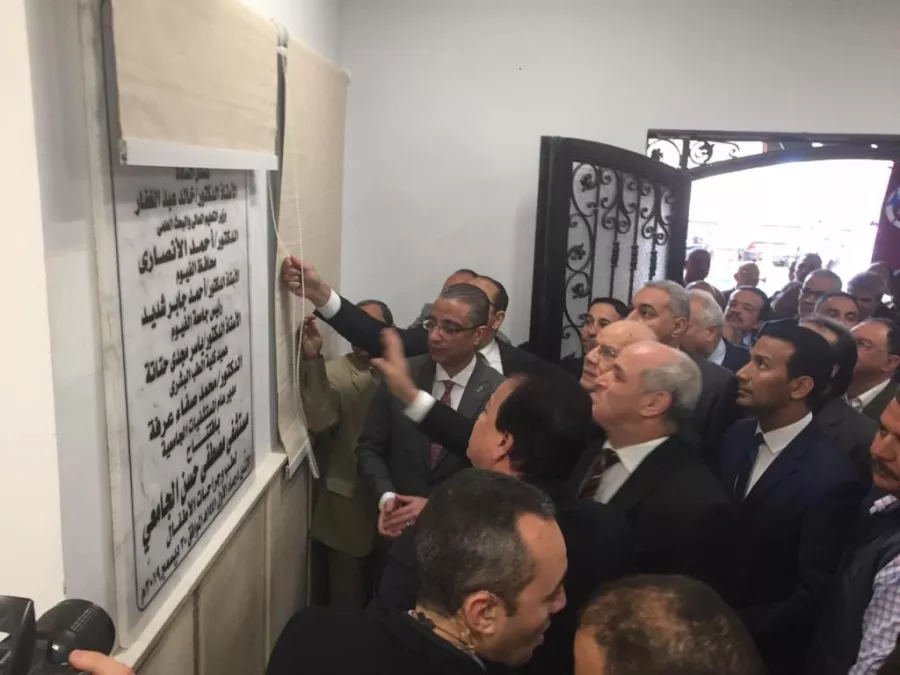 الأستاذ الدكتور/ خالد عبد الغفار
وزير التعليم العالى والبحث العلمى
الدكتور/ أحمد الأنصارى
محافظ الفيوم
الأستاذ الدكتور/ أحمد جابر شديد
رئيس جامعة الفيوم
الأستاذ الدكتور/ ياسر مجدى حتاتة
عميد كلية الطب البشرى
الدكتور/ محمد صفاء عرفة
مدير عام المستشفيات الجامعية
بافتتاح
مستشفى مصطفى حسن الجامعى
لطب وجراحات الأطفال